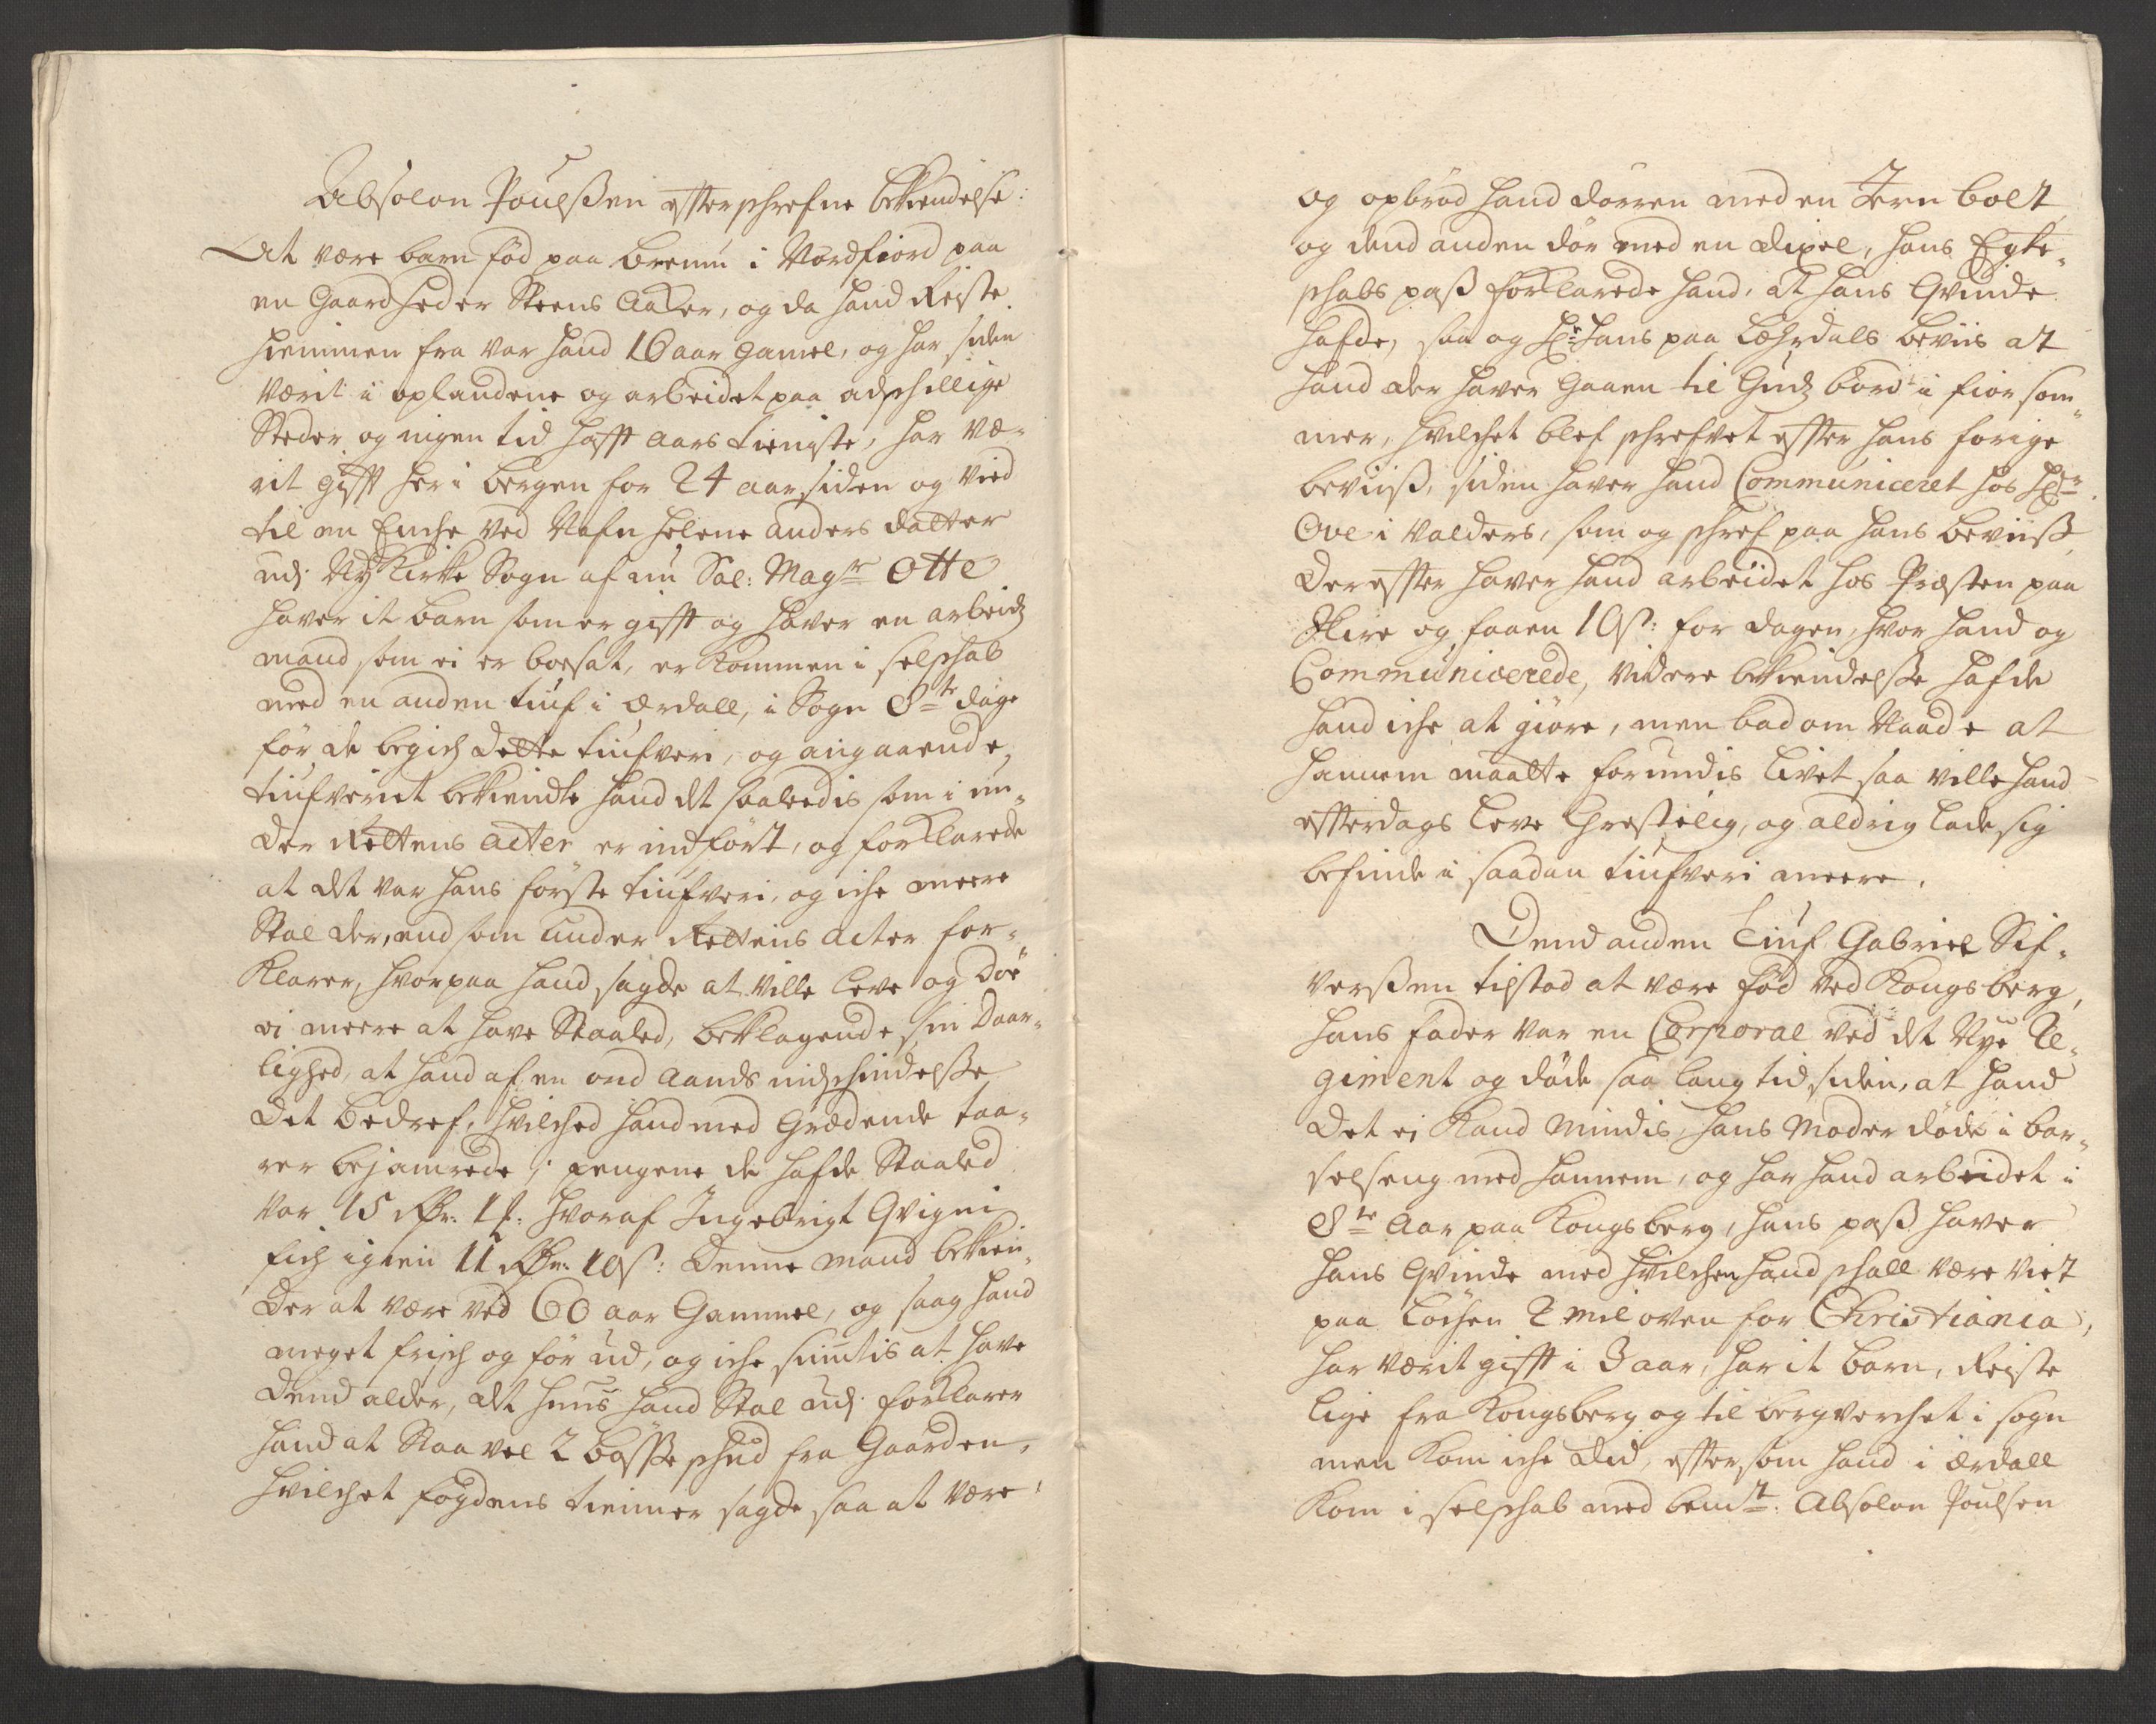 Absolon Poulßen efterschrefne bekiendelse:
At være barn fød paa bremu i Nordfiord paa
en Gaard heder Steens Aaker, og da hand Reiste
hiemmen fra var hand 16 aar gamel, og har siden
værit i oplandene og arbeidet paa adschellige
Steder og nigen tid hafft aars tieniste, har væ-
rit gifft her i bergen for 24 aar siden og vied
til en Enche ved Nafn helene anders datter
udj Ny Kirke Sogn af nu Sal: Magr Otte
haver it barn som er gifft og haver en arbeidz
mand som ei er boesat, er kommen i selschab
med en anden tiuf i Ærdall, i Sogn 8te dage
før de begich dette tiufveri, og angaaende
tiufveriet bekiendte hand det saaledis som i un-
der Rettens acter er indført, og forklarede
at det var hans første tiufveri, og iche meere
Stal der, end som under Rettens acter for-
klarer, hvorpaa hand sagde at ville leve og døe
ei meere at have Staaled, beklagende sin daar-
lighed, at hand af en ond aands indschindelsse
det bedref, hvilched hand med grædende taa-
rer bejamrede; pengene de hafde Staaled
var 15 Rdr: 1 ß: hvoraf Ingebrigt Qvigni
fich igien 11 Rdr: 10 ß: Denne mand bekien-
der at være ved 60 aar Gammel, og saag hand
meget frisch og før ud, og iche siuntis at have
dend alder, det huus hand Stal udj forklarer
hand at Staa vel 2 bøsse schud fra Gaarden,
hvilchet fogdens tienner sagde saa at være,
og opbrød hand dørren med en Jern bolt
og dend anden dør med en dixel, hans Egte-
schabs pass forklarede hand, at hans Qvinde
hafde, saa og Hr: Hans paa Læhrdals beviis at
hand der haver gaaen til Gudz bord i fior som-
mer, hvilchet blef schrefvet efter hans forige
beviiß, siden haver hand Communiceret hos Hr:
Ove i Valders, som og schref paa hans beviiß
derefter haver hand arbeidet hos Præsten paa
Slire og faaen 10 ß: for dagen, hvor hand og
Communicerede, videre bekiendelsse hafde
hand iche at giøre, men bad om Naade at
hannem maatte forundis livet saa ville hand
efterdags leve Christelig, og aldrig lade sig
befinde i saadan tiufveri meere.
Dend anden Tiuf Gabriel Sif-
versßen tilstod at være fød ved Kongsberg,
hans fader var en Corporal ved det Nye Re-
giment og døde saa lang tid siden, at hand
det ei kand mindis, hans Moder døde i bar-
selseng med hannem, og har hand arbeidet i
8te Aar paa Kongsberg, hans pass haver
hans Qvinde med hvilchen hand schall være viet
paa Løchen 2 mil oven for Christiania,
har værit gifft i 3 aar, har it barn, Reiste
lige fra Kongsberg og til bergverchet i sogn
men kom iche did, eftersom hand i Ærdall
kom i selschab med bemt: Absolon Poulsen